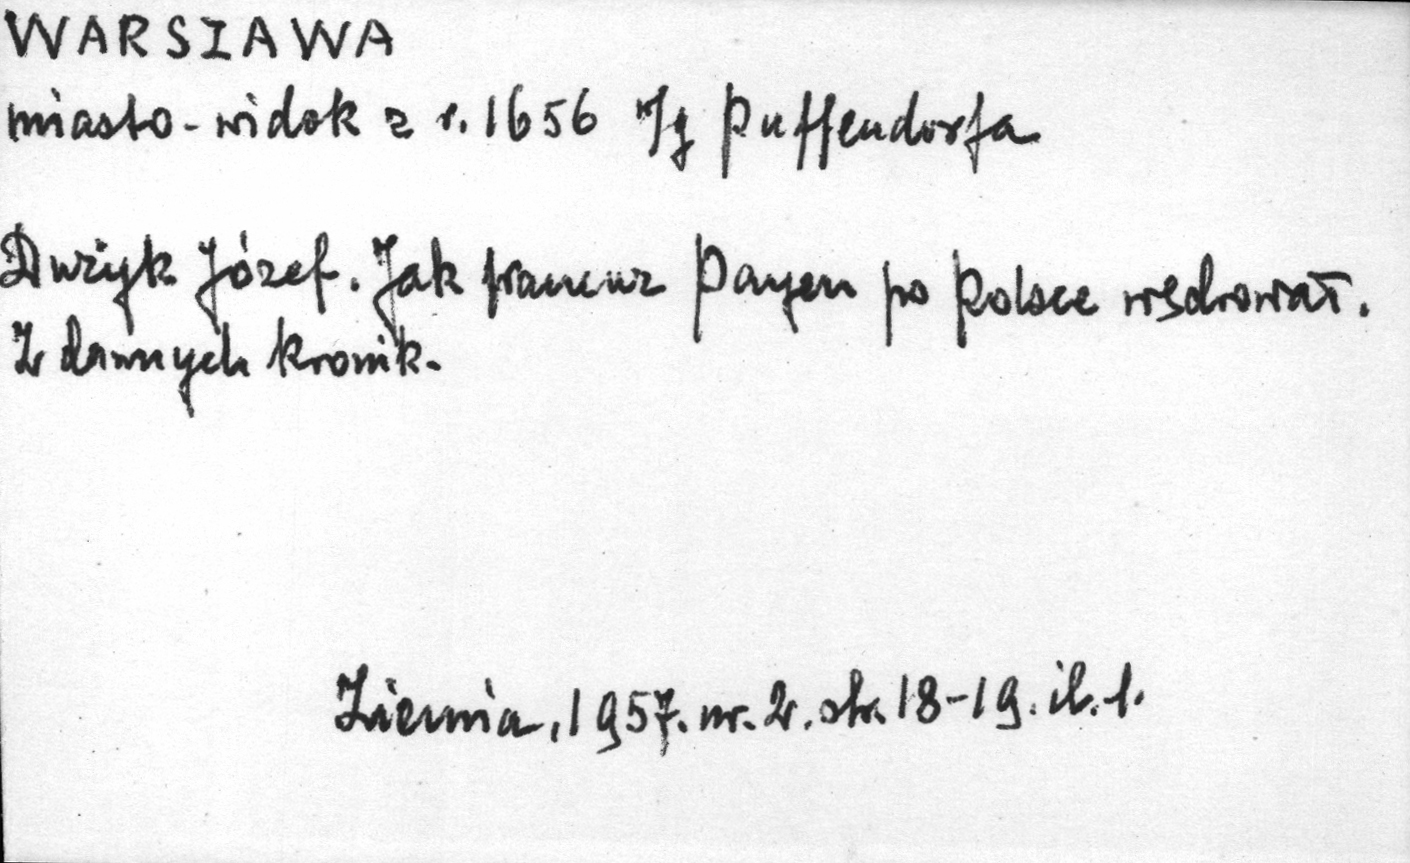 WARSZAWA
miasto - widok z r. 1656 w/g Puffendorfa
Dużyk Józef. Jak francuz Payen po Polsce wędrował.
Z dawnych kronik.
Ziemia, 1957. nr. 2. str. 18-19. il. 1.